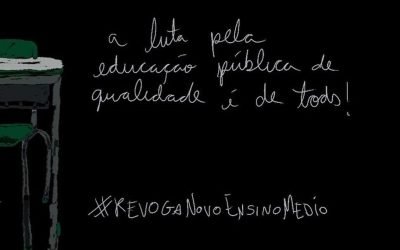 a luta pela
educação pública de
qualidade é de tods!
#REVOGANOVOENSINOMEDIO